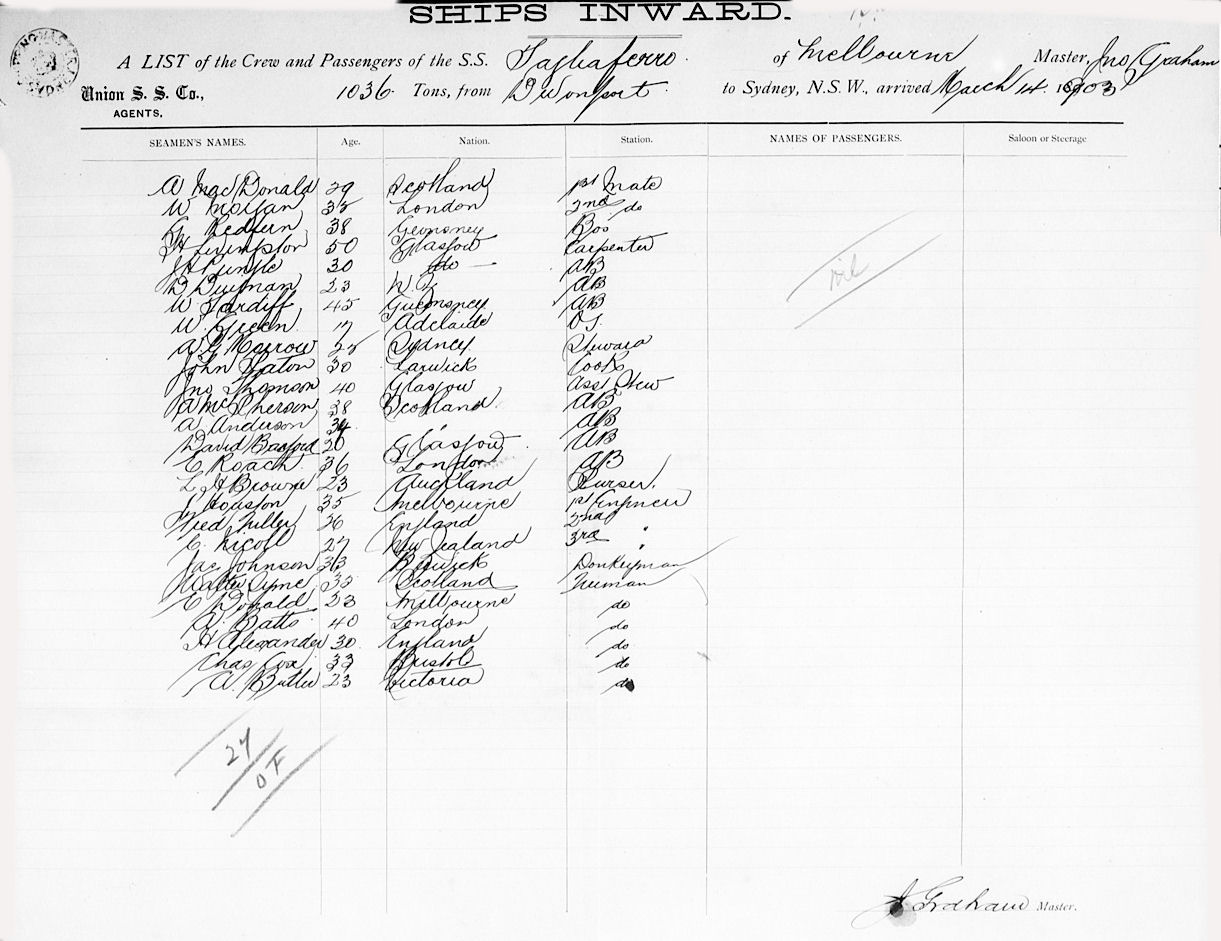 SHIPS INWARD.
A LIST of the Crew and Passengers of the S.S. Tagliaferro of Melbourne Master, Jno Graham
Union S. S. Co., 1036 Tons, from Devonport to Sydney, N.S.W., arrived March 14. 1903
AGENTS.
SEAMEN'S NAMES. Age. Nation. Station. NAMES OF PASSENGERS. Saloon or Steerage
A MacDonald 29 Scotland 1st Mate
W Morgan 35 London 2nd do
G Redfern 38 Guernsey Bos
H Livingston 50 Glasgow Carpenter
30 do AB
D 23 N.Z AB
W Tardiff 45 Guernsey AB
W. Green 17 Adelaide O.S.
A G Morrow 25 Sydney Steward
John Eaton 30 Larwick Cook
Jno Thomson 40 Glasgow Asst Stew
A McPherson 38 Scotland AB
A Anderson 34 " AB
David 20 Glasgow AB
E Roach 36 London AB
L H Browne 23 Auckland Purser.
J Houston 35 Melbourne 1st Engineer
Fred Fuller 26 England 2nd
C. Nicoll 27 New Zealand 3rd "
Jas Johnson 33 Berwick Donkeyman
Walter Syme 35 Scotland Fireman
C Donald 23 Melbourne do
A. Batts 40 London do
H Alexander 30 England do
Chas Cox 33 Bristol do
A. Butler 23 Victoria do
nil
27
OF
J Graham Master.